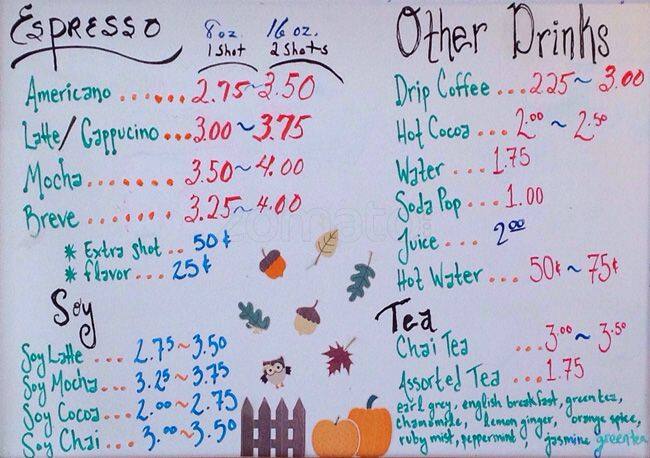 Espresso 8 oz. 16 oz.
1 shot 2 shots
Americano ...... 2.75~3.50
Latte/Cappucino ... 3.00~3.75
Mocha....... 3.50~4.00
Breve....... 3.25~4.00
* Extra shot .. 50¢
* flavor.... 25¢
Soy
Soy Latte ... 2.75~3.50
Soy Mocha... 3.25~3.75
Soy Cocoa... 2.00~2.75
Soy Chai... 3.00~3.50
Other Drinks
Drip Coffee... 2.25~ 3.00
Hot Cocoa ... 2.00 ~ 2.50
Water.... 1.75
Soda Pop... 1.00
Juice .... 2.00
Hot Water.... 50¢ ~ 75¢
Tea
Chai Tea ...3.00 ~ 3.50
Assorted Tea ... 1.75
earl grey, english breakfast, green tea,
chamomile, lemon ginger, orange spice,
ruby mist, peppermint, jasmine green tea
zomato